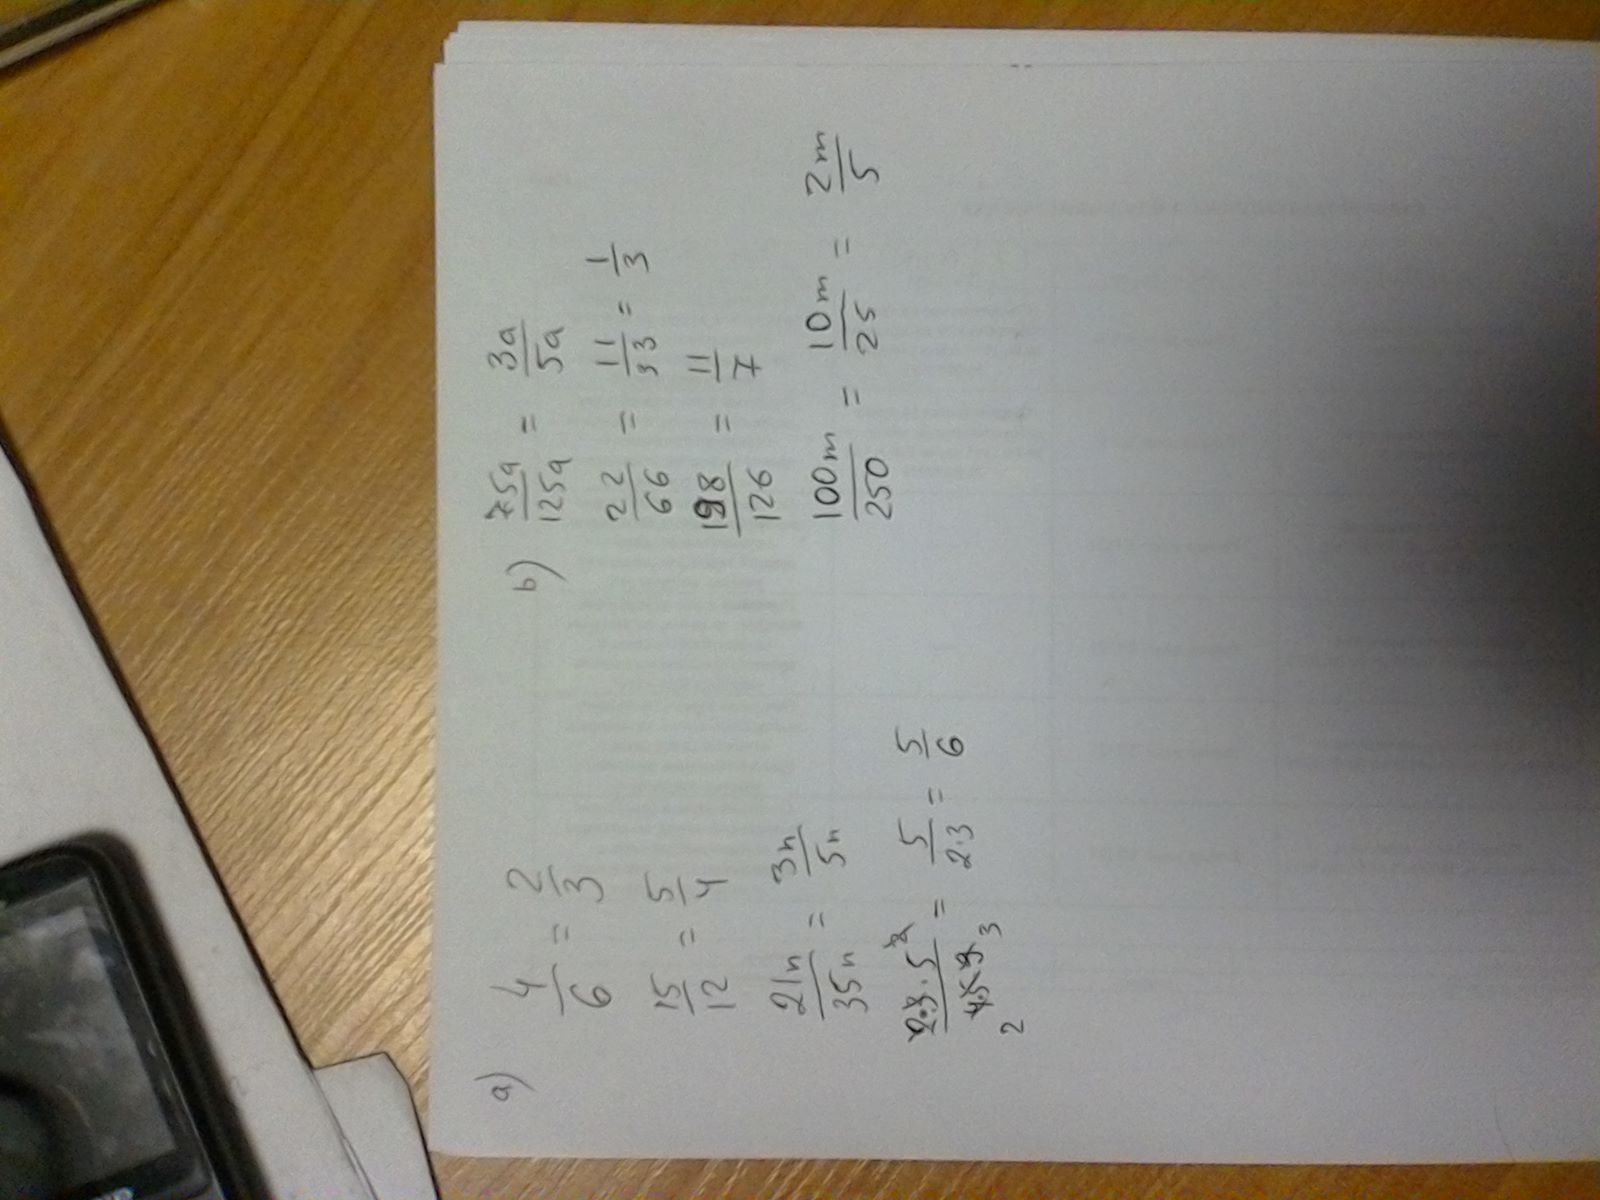 a)
4/6 = 2/3
15/12 = 5/4
21n/35n = 3n/5n
2·3·5²/4·5·9 = 5/2·3 = 5/6
2 3
b)
75a/125a = 3a/5a
22/66 = 11/33 = 1/3
198/126 = 11/7
100m/250 = 10m/25 = 2m/5